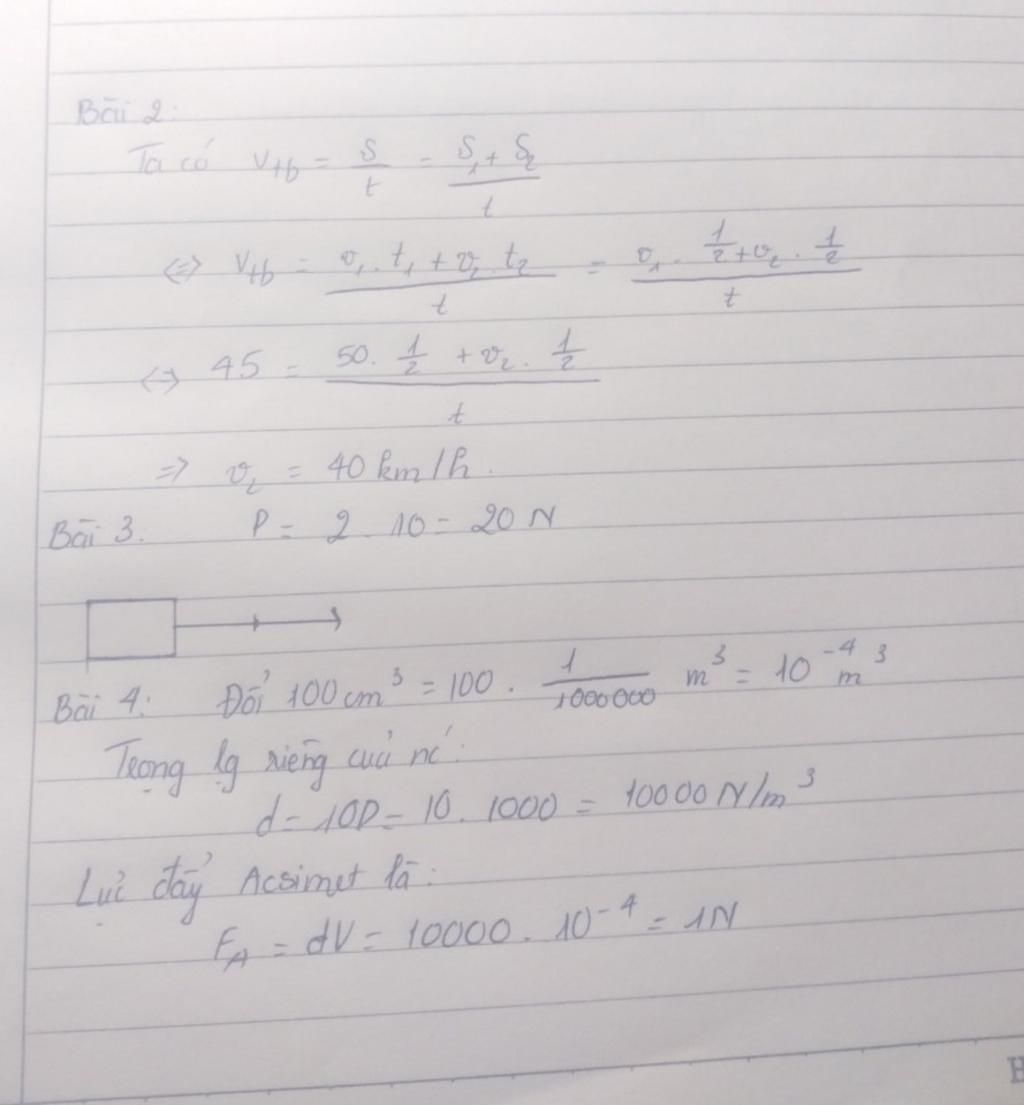 Bài 2:
Ta có V_tb = S/t = (S₁ + S₂)/t
<=> V_tb = (v₁ . t₁ + v₂ . t₂)/t = (v₁ . 1/2 + v₂ . 1/2)/t
<=> 45 = (50 . 1/2 + v₂ . 1/2)/t
=> v₂ = 40 km/h.
Bài 3. P = 2 . 10 = 20 N
Bài 4: Đổi 100 cm³ = 100 . 1/1000000 m³ = 10⁻⁴ m³
Trọng lg riêng cuả nć:
d = 10D = 10 . 1000 = 10000 N/m³
Lực đẩy Acsimet là:
F_A = dV = 10000 . 10⁻⁴ = 1N
H